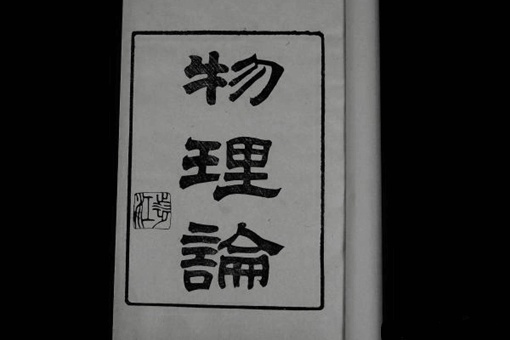 物理論